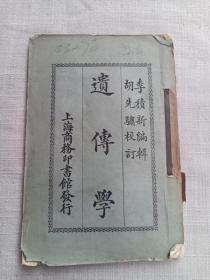 李積新編輯
胡先驌校訂
遺傳學
上海商務印書館發行